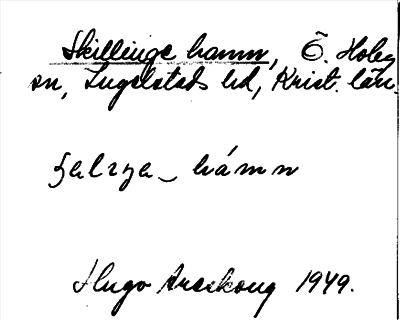 Skillinge hamn, Ö. Hoby
sn, Ingelstads hd, Krist. län.
hámn
Hugo Areskoug 1949.